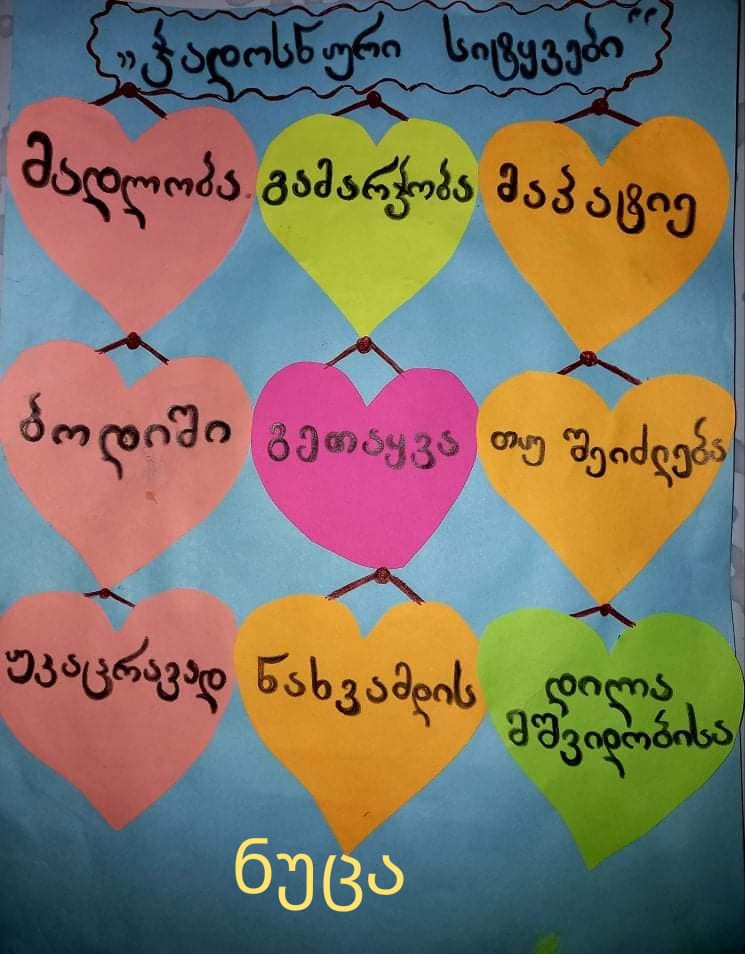 „ჯადოსნური სიტყვები“
მადლობა.
გამარჯობა
მაპატიე
ბოდიში
გეთაყვა
თუ შეიძლება
უკაცრავად
ნახვამდის
დილა
მშვიდობისა
ნუცა